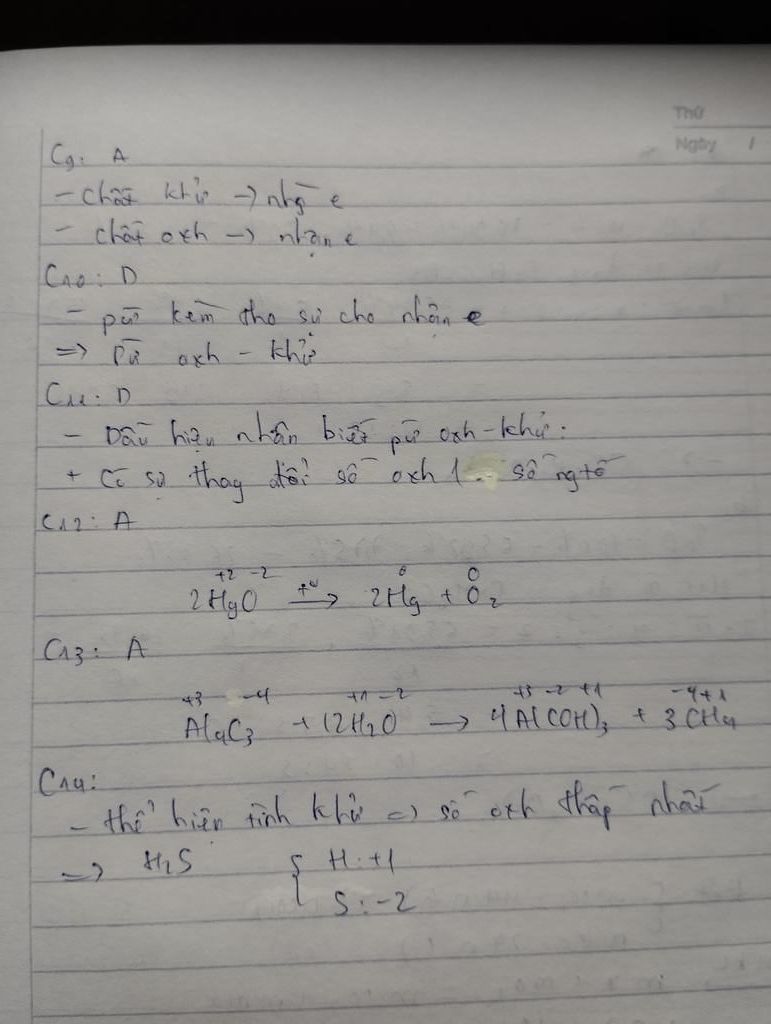 Thứ
Ngày /
C9: A
- chất khử → nhg e
- chất oxh → nhận e
C10: D
- pứ kèm theo sự cho nhận e
=> pứ oxh - khử
C11: D
- Dấu hiệu nhận biết pứ oxh-khử:
+ Có sự thay đổi số oxh 1 số ngtố
C12: A
+2 -2 0 0
2HgO → 2Hg + O2
C13: A
+3 -4 +1 -2 +3 -2 +1 -4 +1
Al4C3 + 12H2O → 4Al(OH)3 + 3CH4
C14:
- thể hiện tính khử => số oxh thấp nhất
=> H2S { H: +1
S: -2